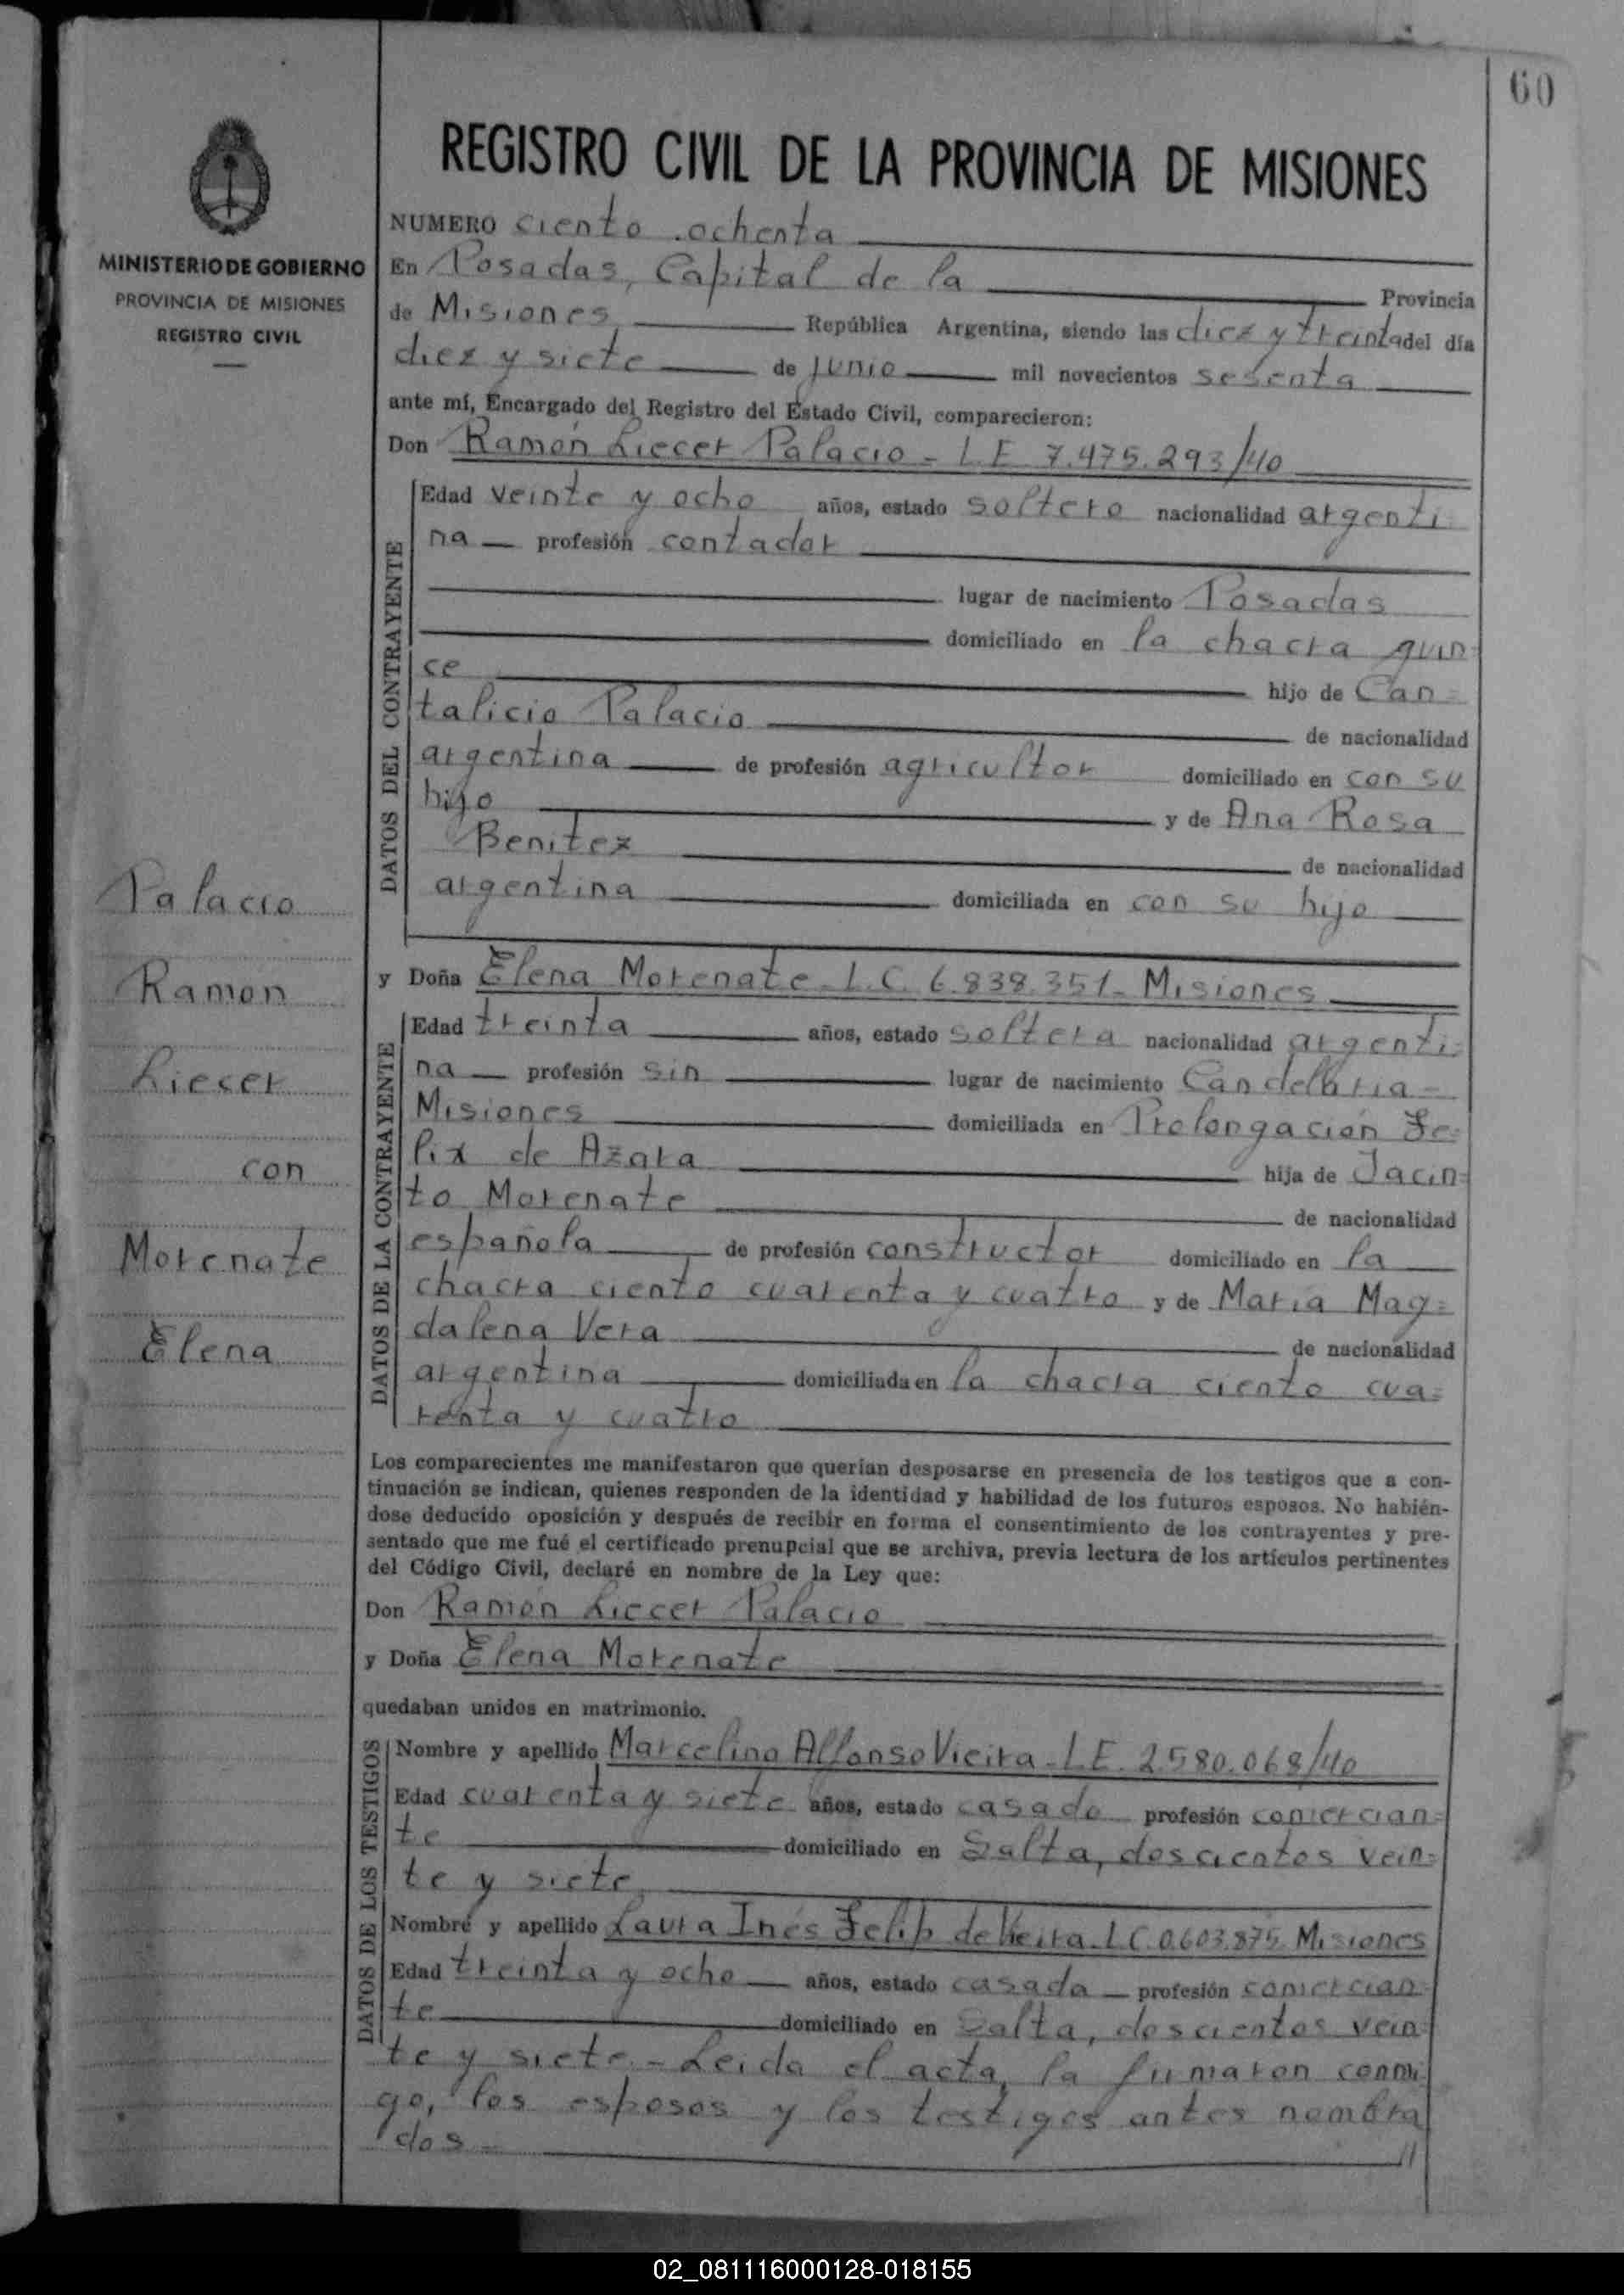 60
REGISTRO CIVIL DE LA PROVINCIA DE MISIONES
MINISTERIO DE GOBIERNO
PROVINCIA DE MISIONES
REGISTRO CIVIL
NUMERO ciento ochenta
En Posadas, Capital de la Provincia
de Misiones República Argentina, siendo las diez y treinta del día
diez y siete de junio mil novecientos sesenta
ante mí, Encargado del Registro del Estado Civil, comparecieron:
Don Ramón Liecer Palacio - L E 7.475.293/40
DATOS DEL CONTRAYENTE
Edad veinte y ocho años, estado soltero nacionalidad argenti
na profesión contador
lugar de nacimiento Posadas
domiciliado en la chacra quin
ce hijo de Can=
talicio Palacio de nacionalidad
argentina de profesión agricultor domiciliado en con su
hijo y de Ana Rosa
Benitez de nacionalidad
argentina domiciliada en con su hijo
Palacio
Ramon
Liecer
con
Morenate
Elena
y Doña Elena Morenate - L.C. 6.838.351 - Misiones
DATOS DE LA CONTRAYENTE
Edad treinta años, estado soltera nacionalidad argenti=
na profesión sin lugar de nacimiento Candelaria -
Misiones domiciliada en Prolongación Fe=
lix de Azara hija de Jacin=
to Morenate de nacionalidad
española de profesión constructor domiciliado en la
chacra ciento cuarenta y cuatro y de Maria Mag=
dalena Vera de nacionalidad
argentina domiciliada en la chacra ciento cua=
renta y cuatro
Los comparecientes me manifestaron que querían desposarse en presencia de los testigos que a con-
tinuación se indican, quienes responden de la identidad y habilidad de los futuros esposos. No habién-
dose deducido oposición y después de recibir en forma el consentimiento de los contrayentes y pre-
sentado que me fué el certificado prenupcial que se archiva, previa lectura de los artículos pertinentes
del Código Civil, declaré en nombre de la Ley que:
Don Ramón Liecer Palacio
y Doña Elena Morenate
quedaban unidos en matrimonio.
DATOS DE LOS TESTIGOS
Nombre y apellido Marcelino Alfonso Vieira - L E. 2.580.068/40
Edad cuarenta y siete años, estado casado profesión comercian=
te domiciliado en Salta, doscientos vein=
te y siete
Nombre y apellido Laura Inés Felip de Vieira - L C. 0.603.875 Misiones
Edad treinta y ocho años, estado casada profesión comercian=
te domiciliado en Salta, doscientos vein=
te y siete - Leida el acta, la firmaron conmi
go, los esposos y los testigos antes nombra
dos -
02_081116000128-018155